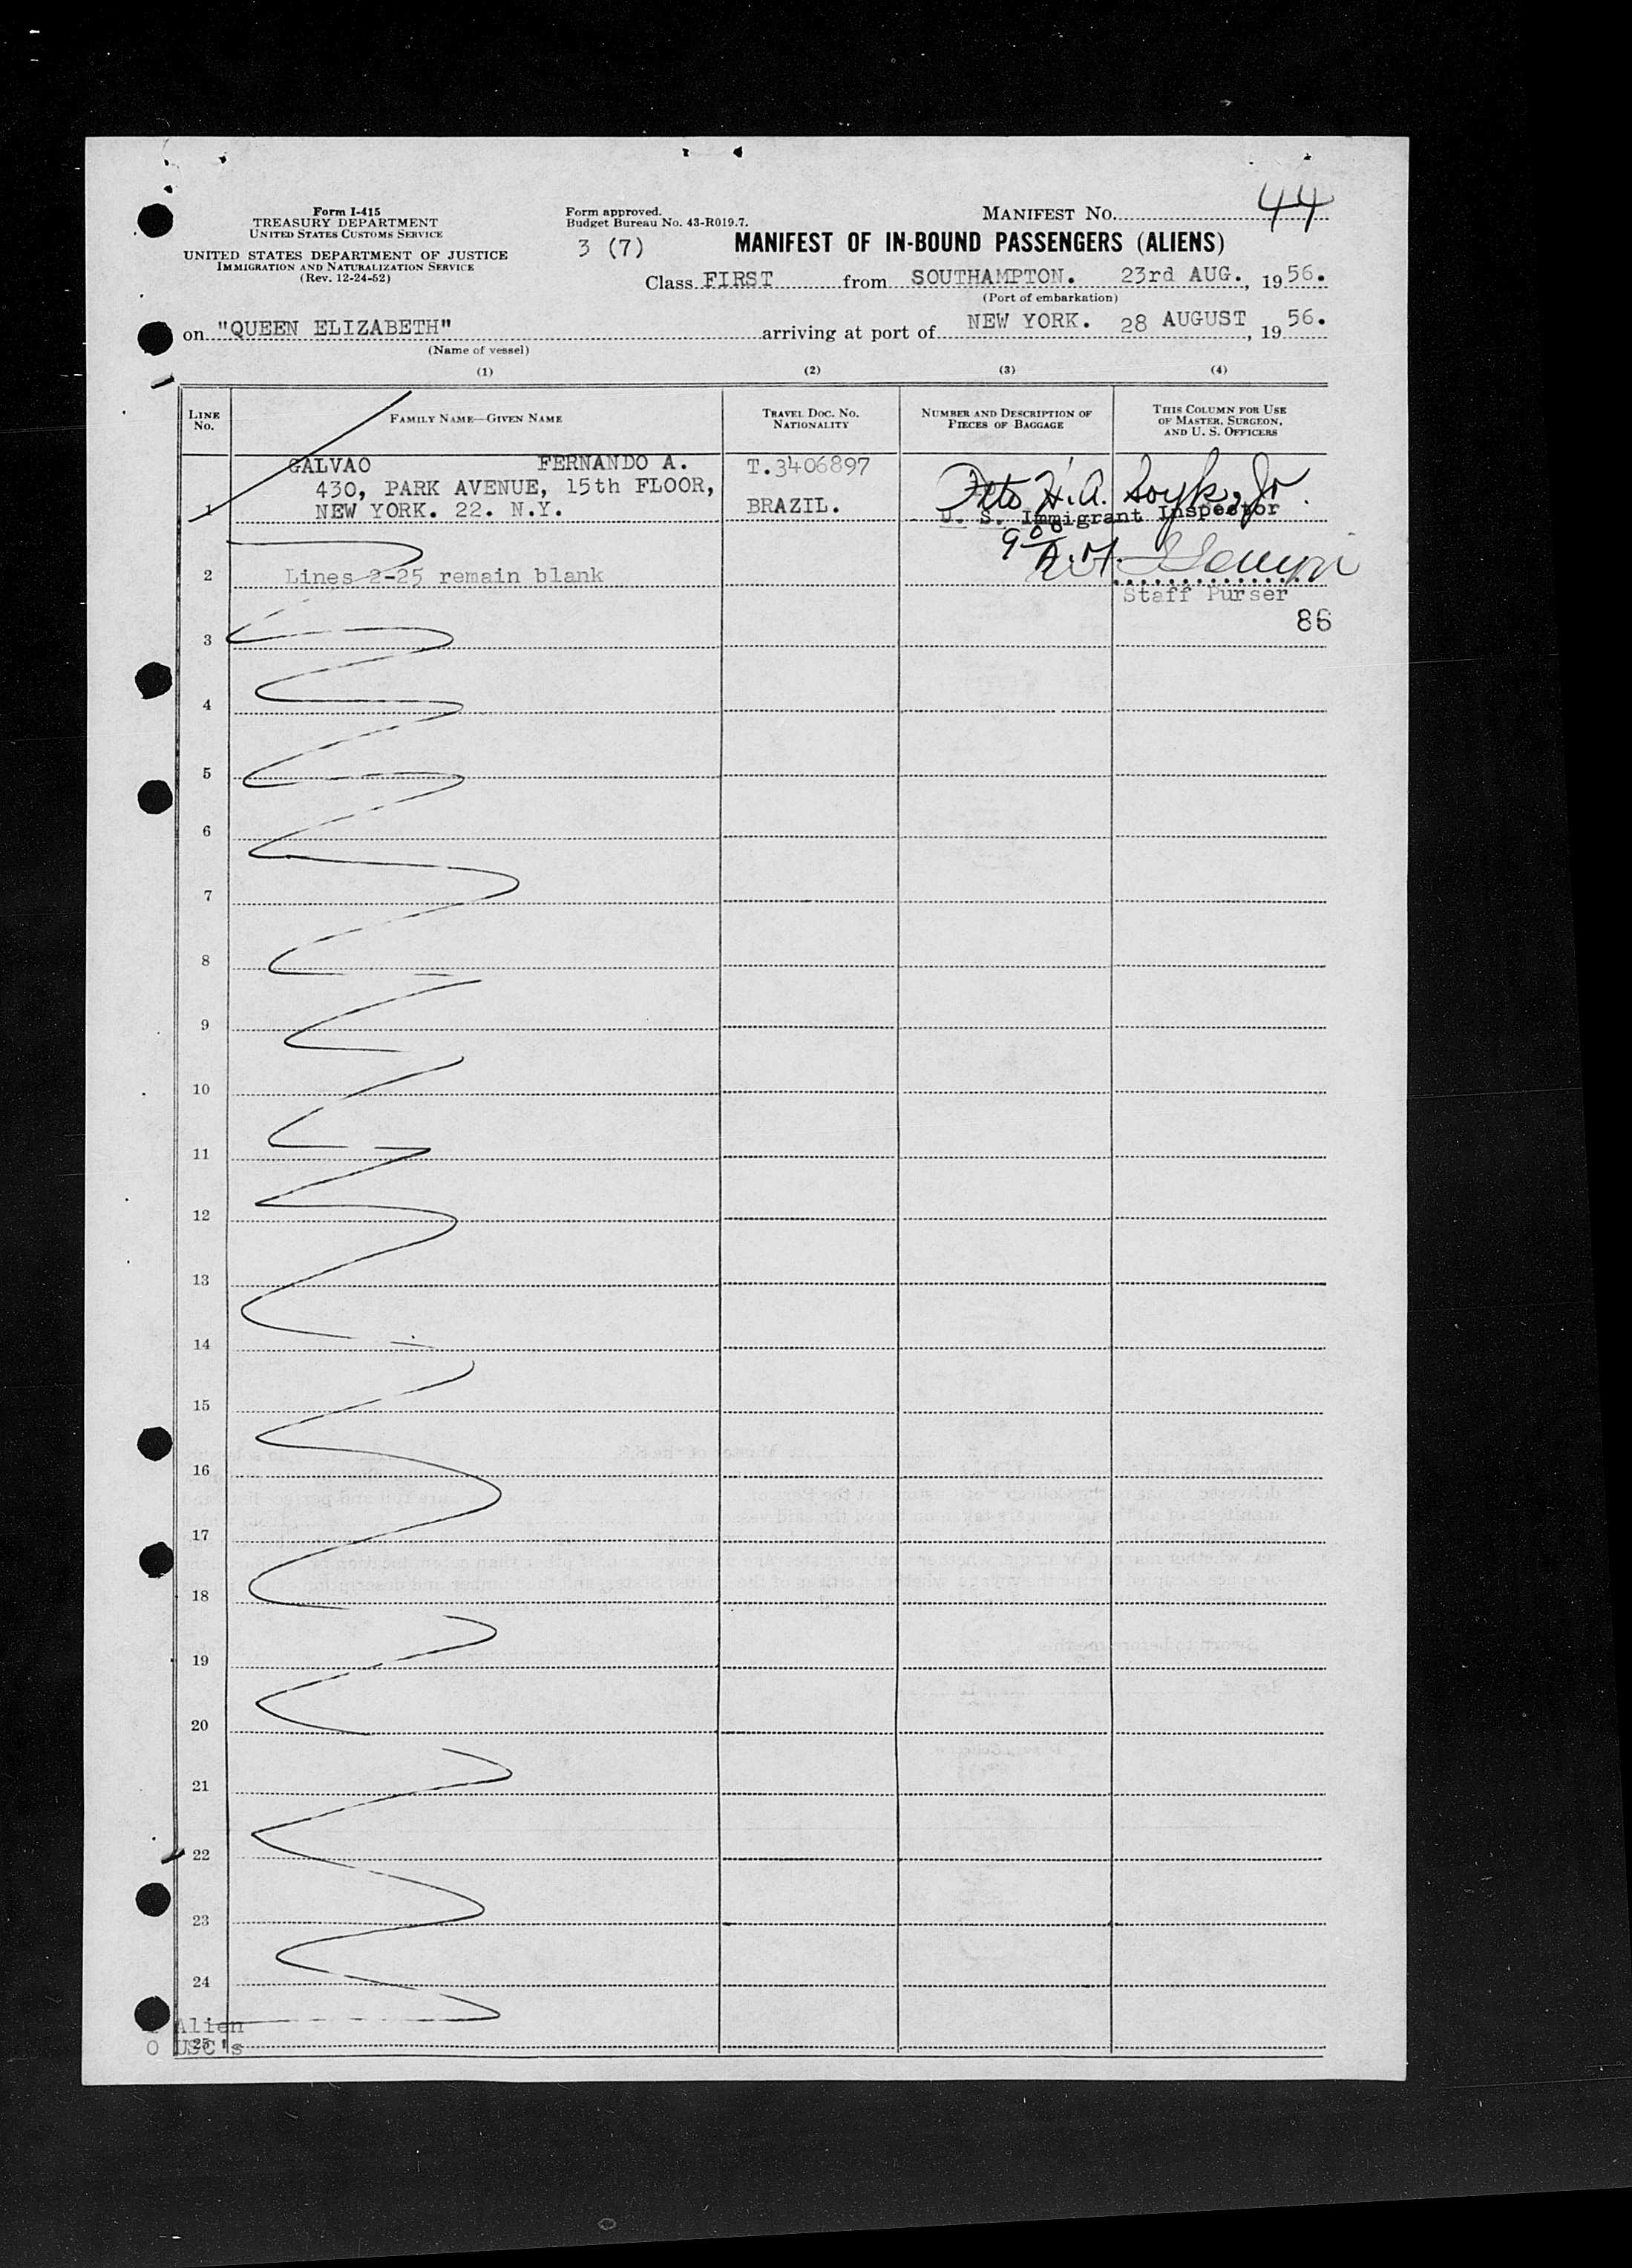 44
Form I-415
TREASURY DEPARTMENT
UNITED STATES CUSTOMS SERVICE
UNITED STATES DEPARTMENT OF JUSTICE
IMMIGRATION AND NATURALIZATION SERVICE
(Rev. 12-24-52)
Form approved.
Budget Bureau No. 43-R019.7.
3 (7)
MANIFEST NO.
MANIFEST OF IN-BOUND PASSENGERS (ALIENS)
Class FIRST from SOUTHAMPTON. 23rd AUG., 1956.
(Port of embarkation)
on "QUEEN ELIZABETH" arriving at port of NEW YORK. 28 AUGUST, 1956.
(Name of vessel)
(1) (2) (3) (4)
LINE NO.
FAMILY NAME—GIVEN NAME
TRAVEL DOC. NO. NATIONALITY
NUMBER AND DESCRIPTION OF PIECES OF BAGGAGE
THIS COLUMN FOR USE OF MASTER, SURGEON, AND U. S. OFFICERS
GALVAO FERNANDO A. T.3406897
430, PARK AVENUE, 15th FLOOR,
1 NEW YORK. 22. N.Y. BRAZIL.
H. A. Jr.
U. S. Immigrant Inspector
9 00 A.M.
2 Lines 2-25 remain blank
Staff Purser
86
3
4
5
6
7
8
9
10
11
12
13
14
15
16
17
18
19
20
21
22
23
24
Alien
25
0 USC's